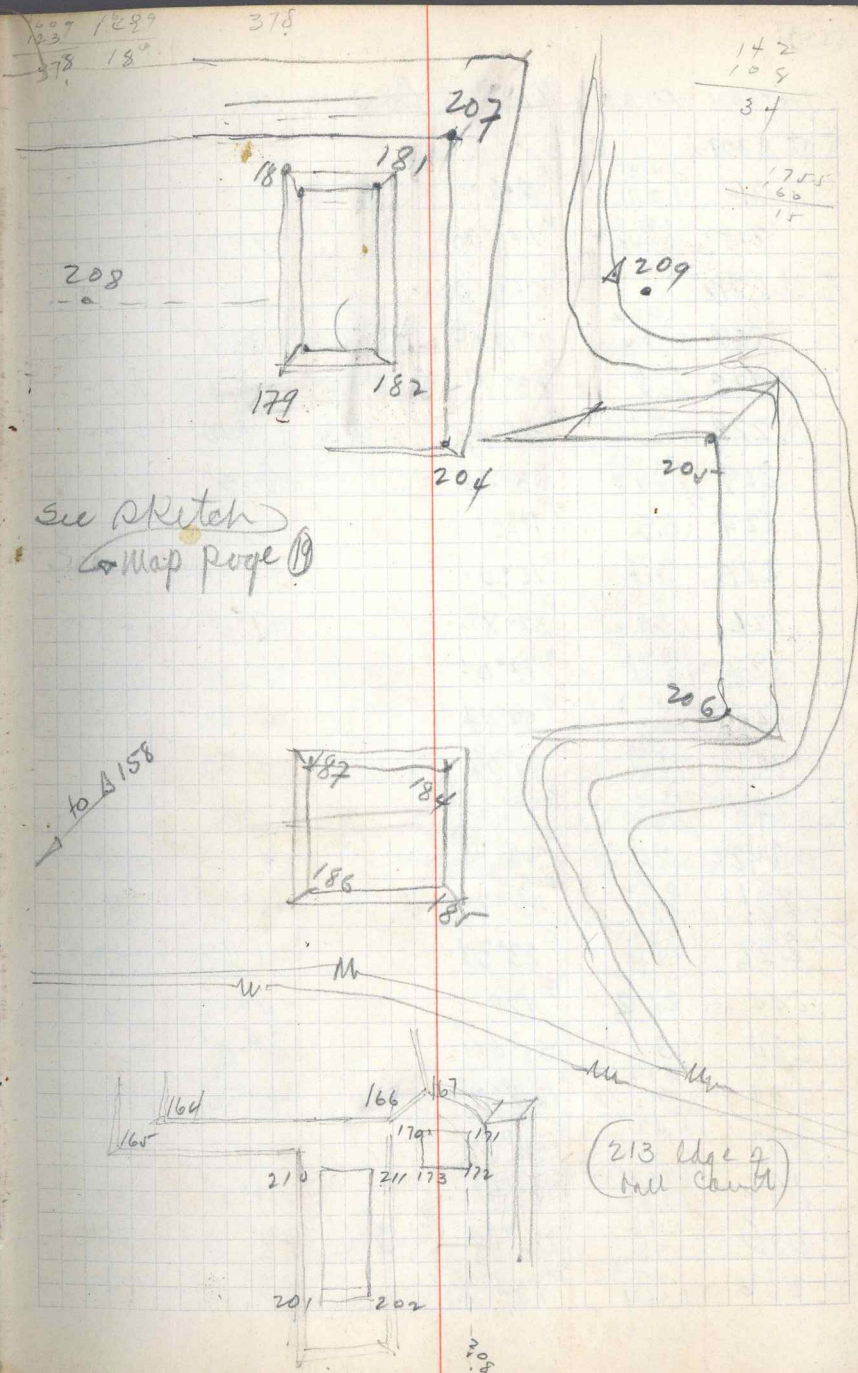 378
142
108
34
378 18°
207
180 181
209
208
179 182
204
205
See Sketch
Map page 19
206
to Δ 158
187 184
186 185
164 166 167
165
170 171
210 211 173 172
(213 edge of
201 202
208